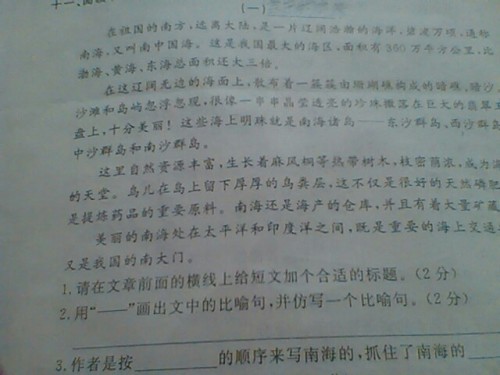 十一、阅
(一)
在祖国的南方,远离大陆,是一片辽阔浩瀚的海洋,碧波万顷,通称
南海,又叫南中国海。这是我国最大的海区,面积有360万平方公里,比
渤海、黄海、东海总面积还大三倍。
在这辽阔无边的海面上,散布着一簇簇由珊瑚礁构成的暗礁、暗沙、
沙滩和岛屿忽浮忽现,很像一串串晶莹透亮的珍珠撒落在巨大的翡翠
盘上,十分美丽!这些海上明珠就是南海诸岛——东沙群岛、西沙群岛
中沙群岛和南沙群岛。
这里自然资源丰富,生长着麻风桐等热带树木,枝密荫浓,成为海
的天堂。鸟儿在岛上留下厚厚的鸟粪层,这不仅是很好的天然磷肥
是提炼药品的重要原料。南海还是海产的仓库,并且有着大量矿藏
美丽的南海处在太平洋和印度洋之间,既是重要的海上交通
又是我国的南大门。
1.请在文章前面的横线上给短文加个合适的标题。(2分)
2.用“——”画出文中的比喻句,并仿写一个比喻句。(2分)
3.作者是按________的顺序来写南海的,抓住了南海的____